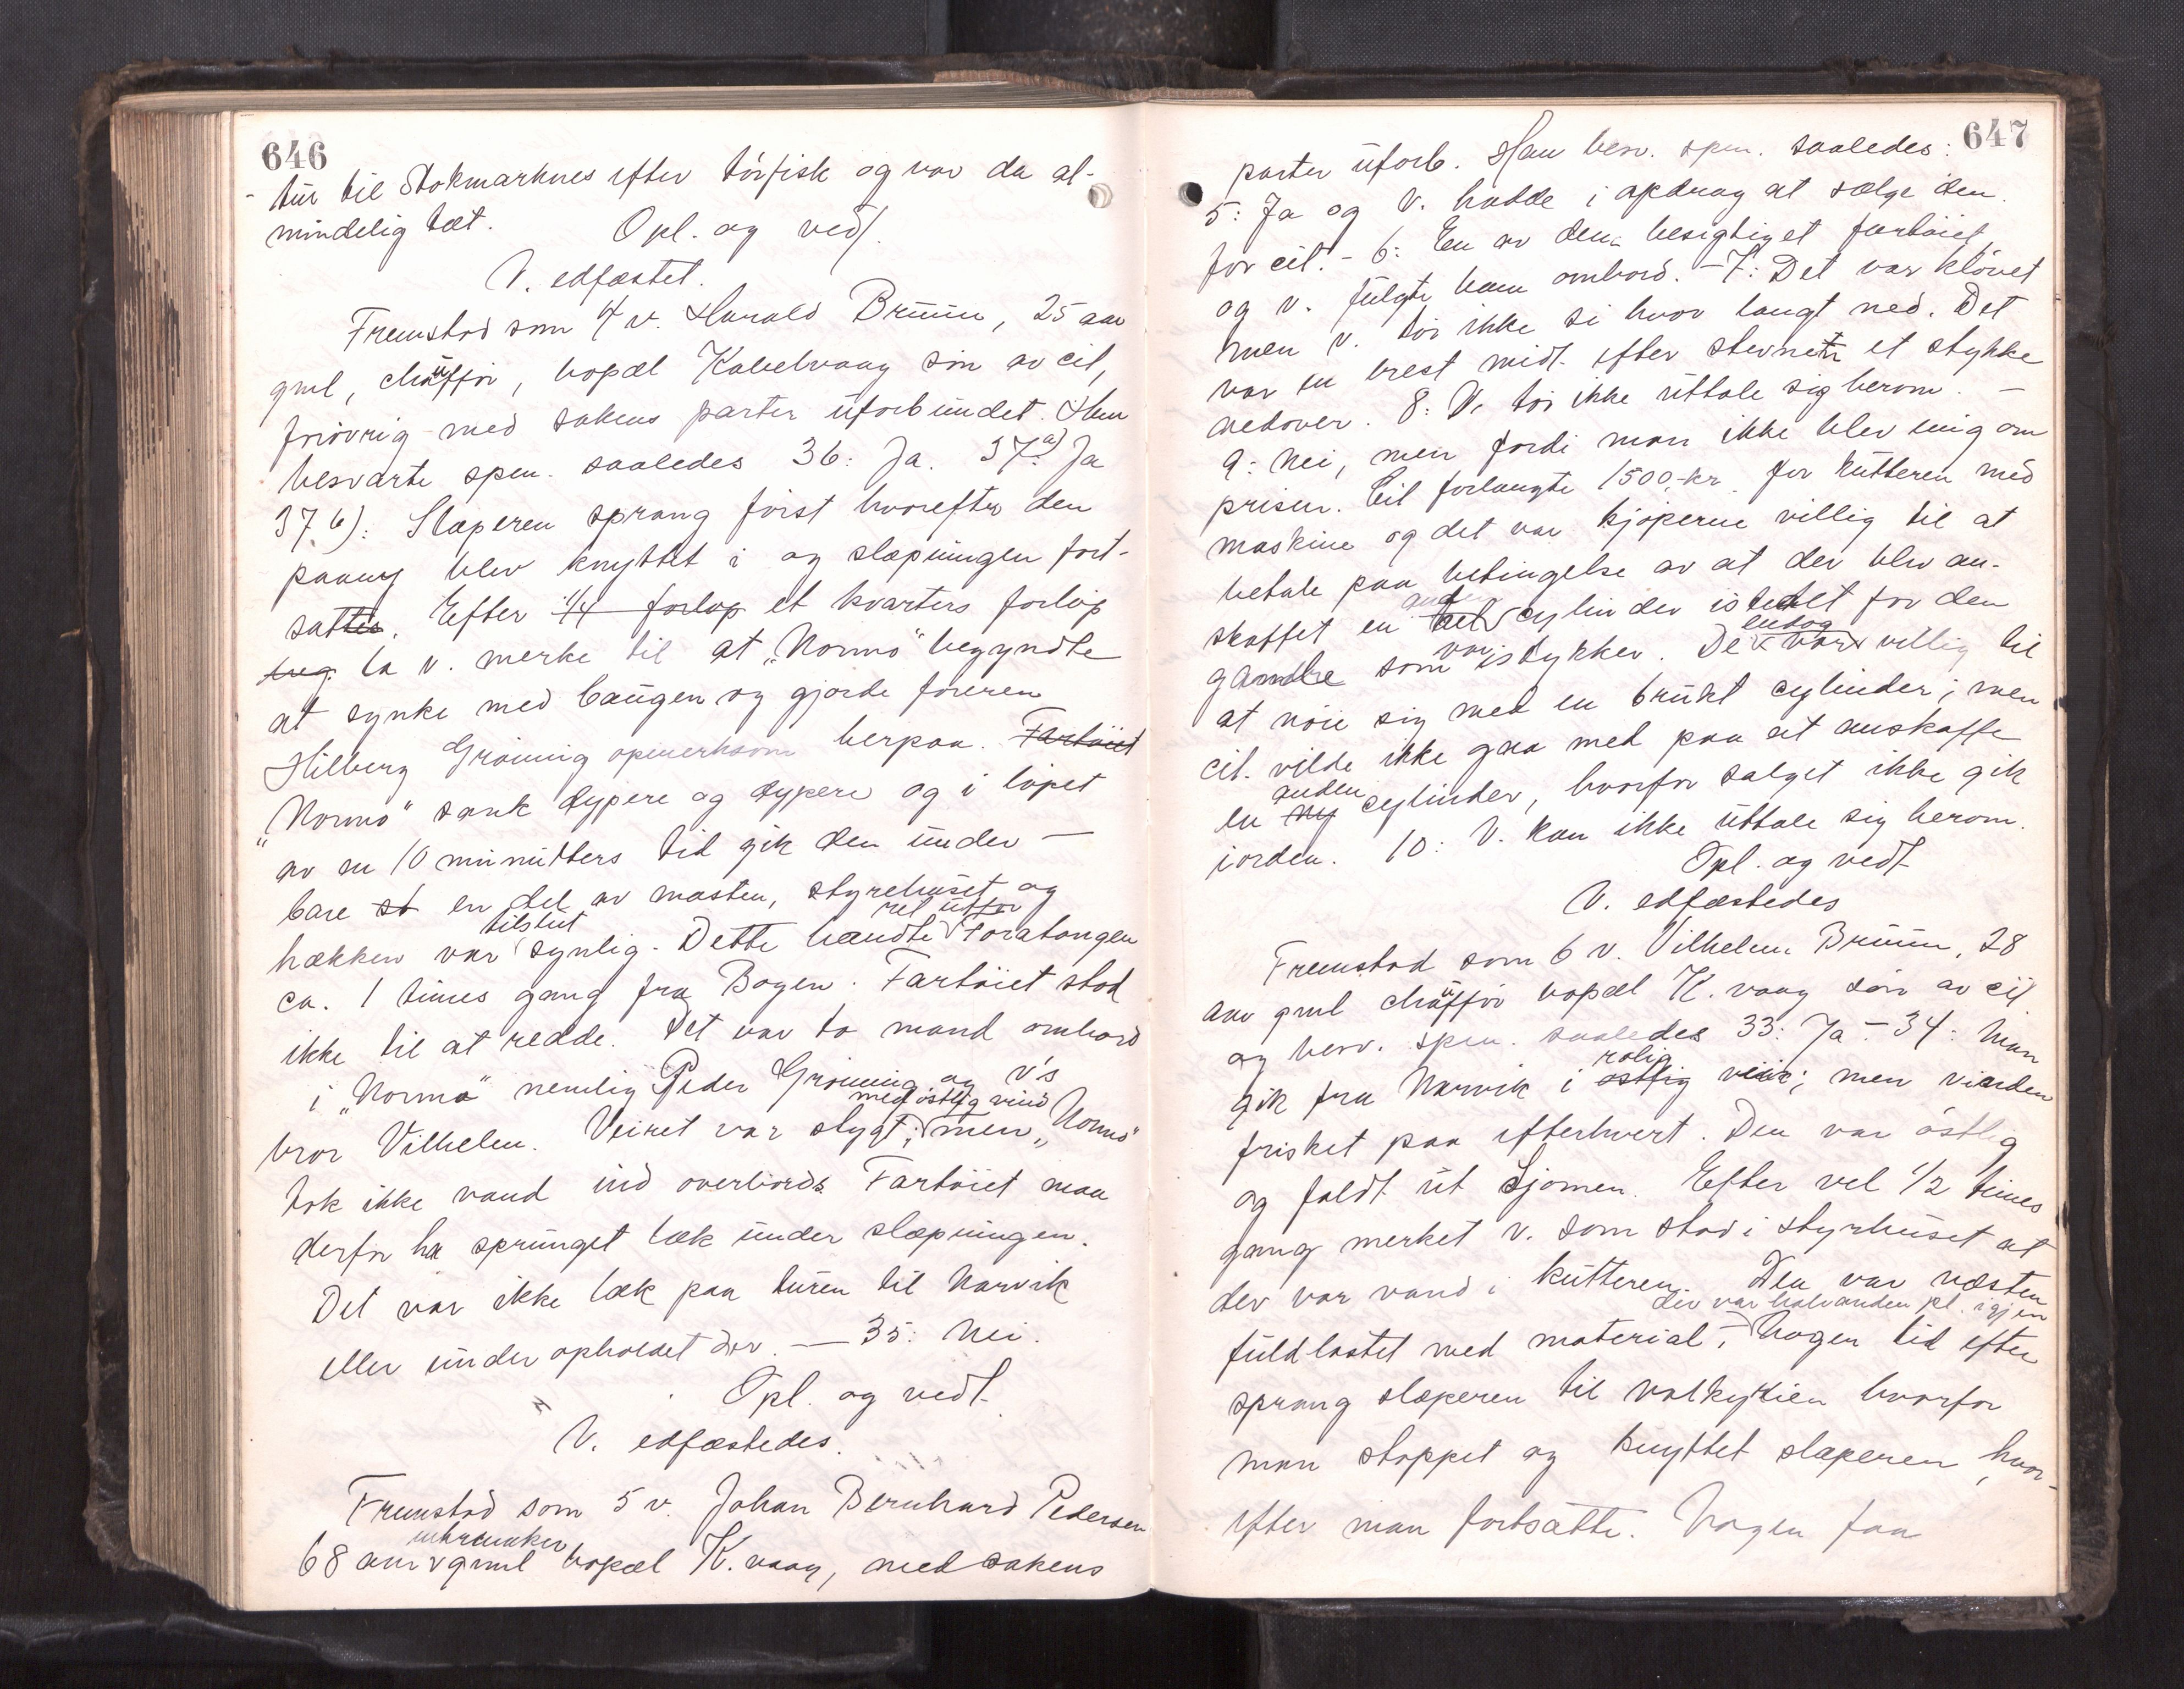 646
tur til Stokmarknes efter törfisk og var da al-
mindelig tæt. Opl. og vedt.
V. edfæstet.
Fremstod som 4 v. Harald Bruun, 25 aar
gml, chaufför, bopæl Kabelvaag sön av cit,
forövrig med sakens parter uforbundet. Han
besvarte spm. saaledes 36: Ja. 37 a) Ja
37 b): Slæperen sprang först hvorefter den
paany blev knyttet i og slæpningen fort-
sattes. Efter 1/4 forlöp et kvarters forlöp
la v. merke til at "Normo" begyndte
at synke med baugen og gjorde föreren
Hilberg Gröning opmerksom herpaa. Fartöiet
"Normo" sank dypere og dypere og i löpet
av en 10 minutters tid gik den under —
bare st en del av masten, styrehuset og
hækken var tilslut synlig. Dette hændte ret utfor Foratangen
ca. 1 times gang fra Bogen. Fartöiet stod
ikke til at redde. Det var to mand ombord
i "Normo" nemlig Peder Gröning og v's
bror Vilhelm. Veiret var stygt med östlig vind; men "Normo"
tok ikke vand ind overbords. Fartöiet maa
derfor ha sprunget læk under slæpningen.
Det var ikke læk paa turen til Narvik
eller under opholdet der. — 35: Nei.
Opl. og vedt.
V. edfæstedes.
Fremstod som 5 v. Johan Bernhard Pedersen
68 aar gml urmaker bopæl K.vaag, med sakens
647
parter uforb. Han besv. spm. saaledes:
5: Ja og v. hadde i opdrag at sælge den
for cit. - 6: En av dem besigtiget fartöiet
og v. fulgte ham ombord. - 7: Det var klövet
men v. tör ikke si hvor langt ned. Det
var en brest midt efter stevnen et stykke
nedover. 8: V. tör ikke uttale sig herom. —
9: Nei, men fordi man ikke blev enig om
prisen. Cit forlangte 1500,- kr. for kutteren med
maskine og det var kjöperne villig til at
betale paa betingelse av at der blev an-
skaffet en anden cylinder istedet for den
gamle som var istykker. De var endog villig til
at nöie sig med en brukt cylinder; men
cit. vilde ikke gaa med paa at anskaffe
en ny anden cylinder, hvorfor salget ikke gik
iorden. 10: V. kan ikke uttale sig herom.
Opl. og vedt
V. edfæstedes
Fremstod som 6 v. Vilhelm Bruun, 28
aar gml chaufför bopæl K.vaag sön av cit
og besv. spm. saaledes 33: Ja - 34: Man
gik fra Narvik i östlig rolig veir; men vinden
frisket paa efterhvert. Den var östlig
og faldt ut Sjomen. Efter vel 1/2 times
gang merket v. som stod i styrhuset at
der var vand i kutteren. Den var næsten
fuldlastet med material, der var halvanden pl. igjen - Nogen tid efter
sprang slæperen til Valkyrien hvorfor
man stoppet og knyttet slæperen, hvor-
efter man fortsatte. Nogen faa